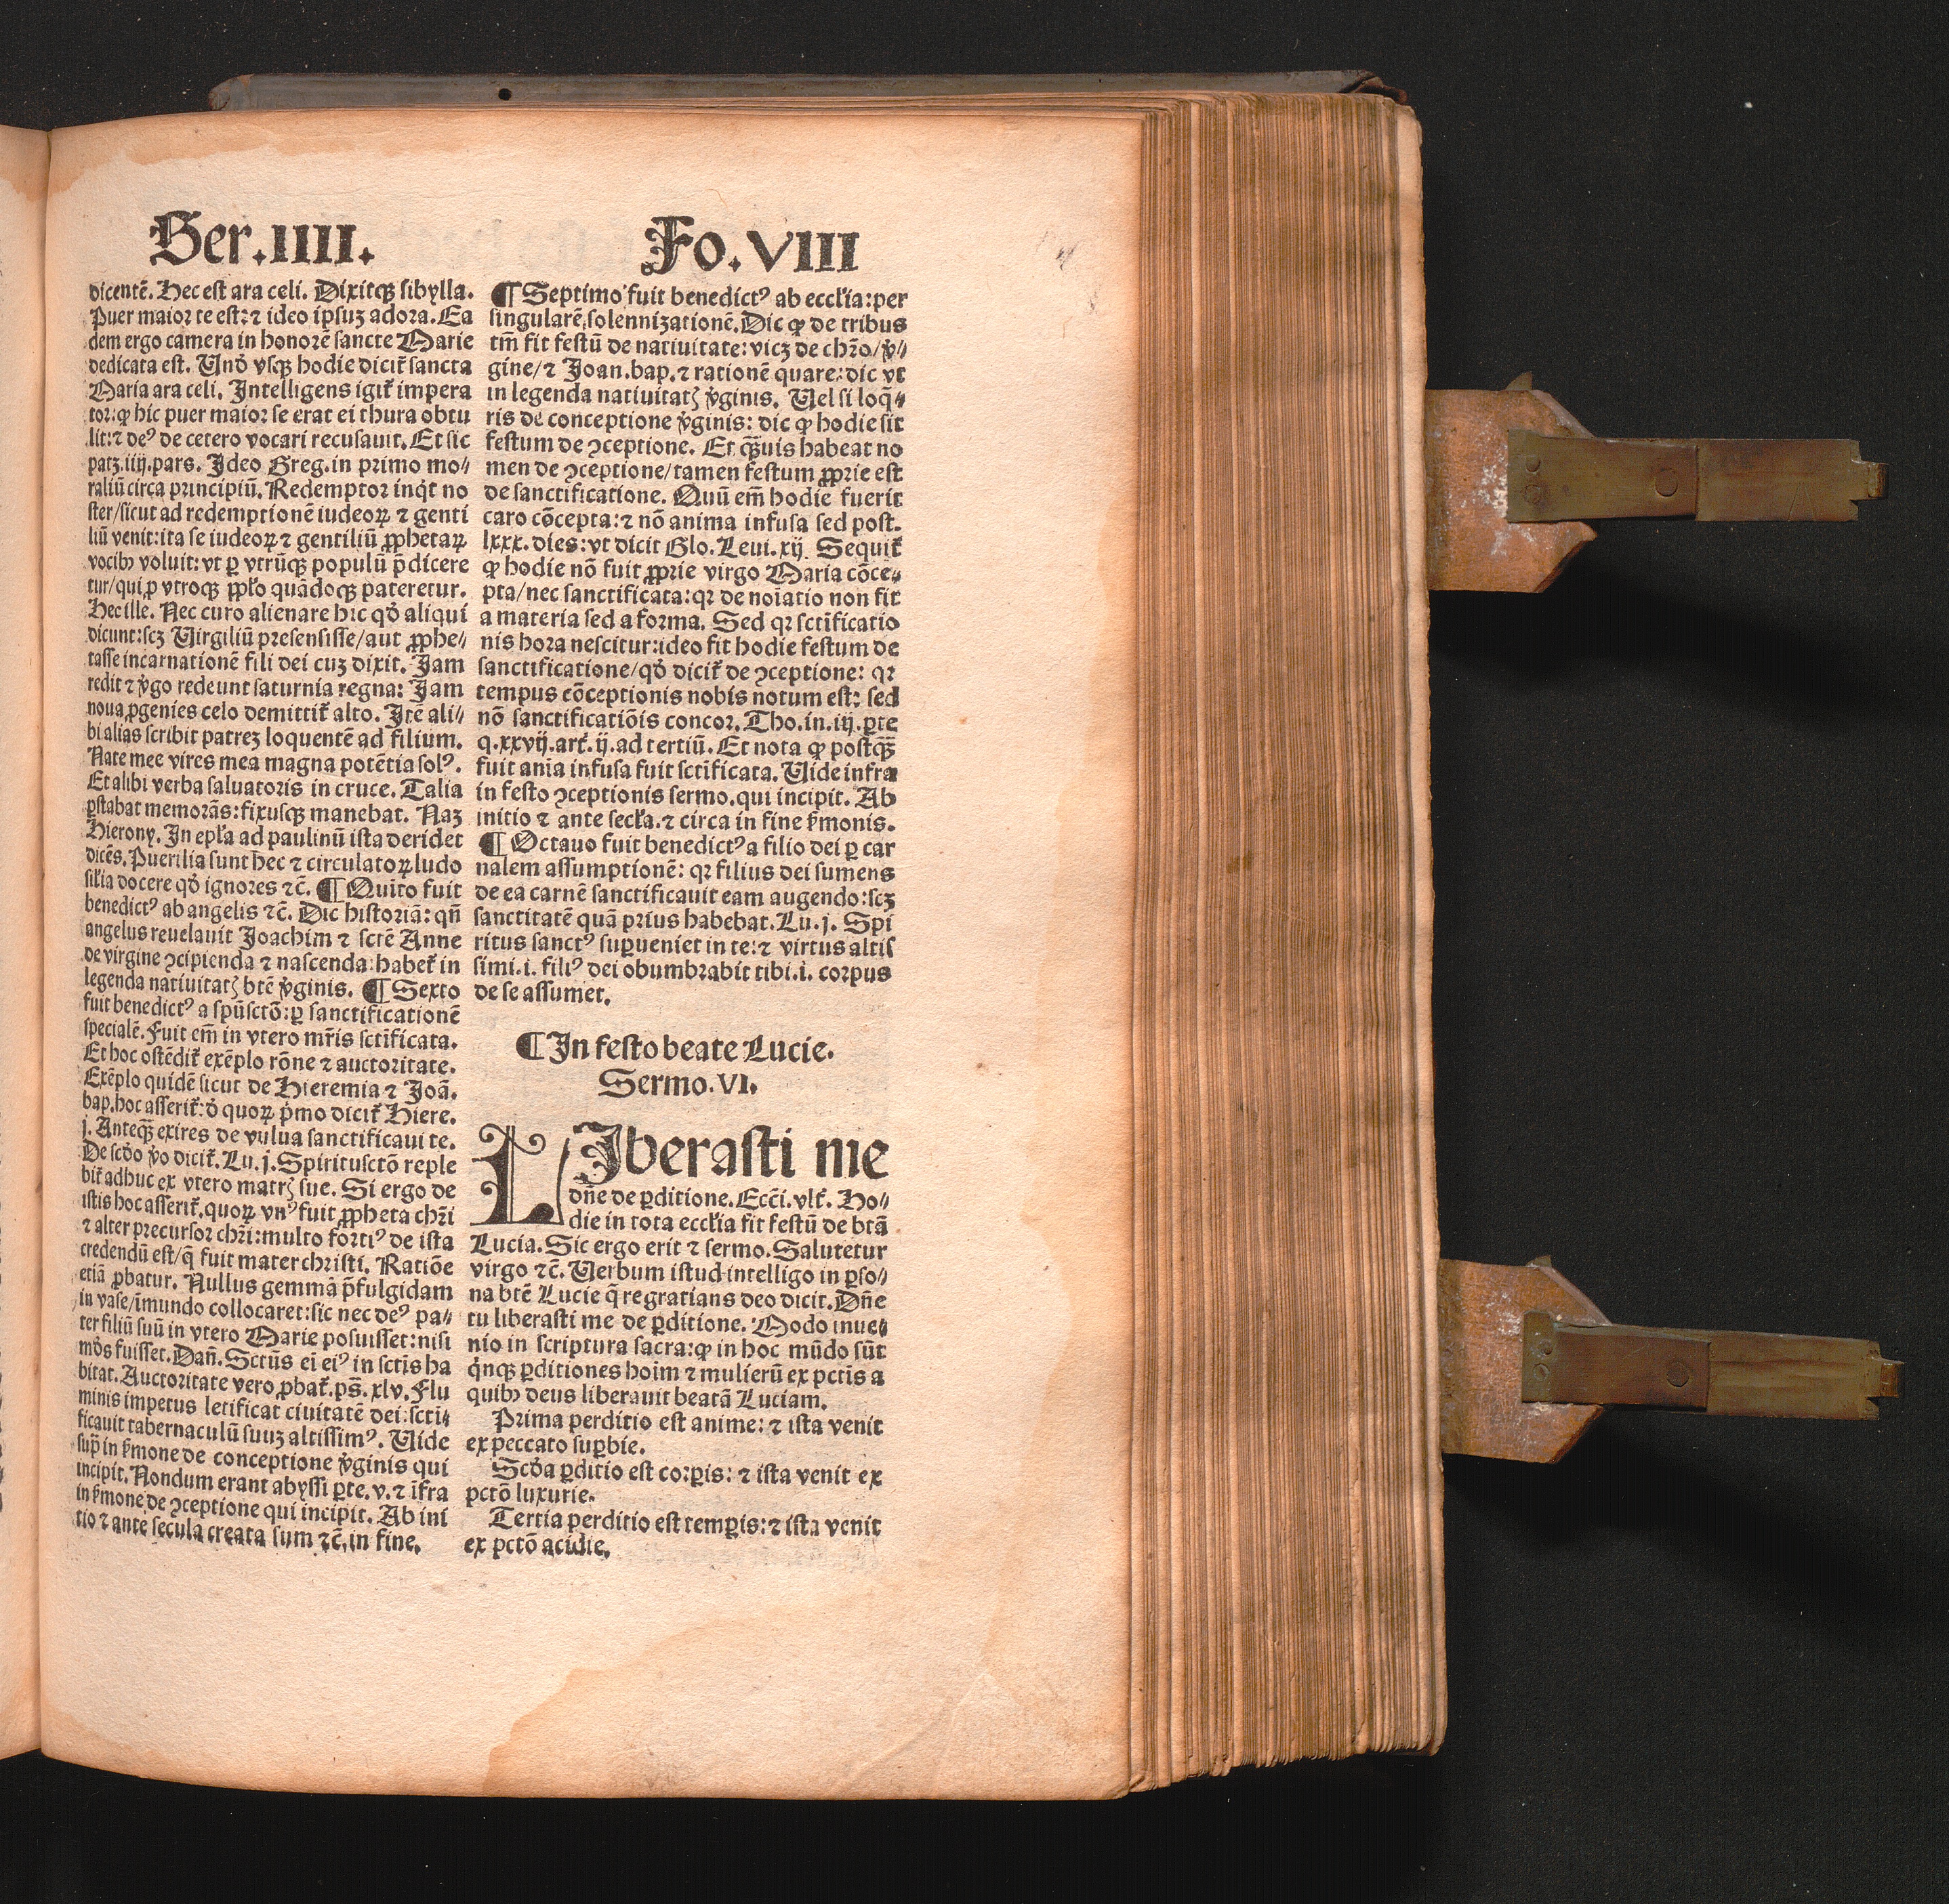 Ser.IIII.
Fo.VIII
dicentē. Hec est ara celi. Dixitqꝫ sibylla.
Puer maior te est: ⁊ ideo ipsuꝫ adora. Ea
dem ergo camera in honorē sancte Marie
dedicata est. Unđ vsqꝫ hodie dicit̃ sancta
Maria ara celi. Intelligens igit̃ impera
tor: ꝙ hic puer maior se erat ei thura obtu
lit: ⁊ deꝰ de cetero vocari recusauit. Et sic
patꝫ.iiij.pars. Ideo Greg.in primo mo⸗
raliū circa principiū. Redemptor inqͥt no
ster/sicut ad redemptionē iudeoꝝ ⁊ genti
liū venit: ita se iudeoꝝ ⁊ gentiliū ꝓphetaꝝ
vocibꝫ voluit: vt ꝑ vtrūqꝫ populū p̄dicere
tur/qui ꝓ vtroqꝫ ppl̃o quādoqꝫ pateretur.
Hec ille. Nec curo alienare hic qđ aliqui
dicunt: scꝫ Virgiliū presensisse/aut ꝓphe⸗
tasse incarnationē fili dei cuꝫ dixit. Iam
redit ⁊ ṽgo redeunt saturnia regna: Iam
noua ꝓgenies celo demittit̃ alto. Itē ali⸗
bi alias scribit patreꝫ loquentē ad filium.
Nate mee vires mea magna potētia solꝰ.
Et alibi verba saluatoris in cruce. Talia
ꝑstabat memorās: fixusqꝫ manebat. Naꝫ
Hierony. In epl̃a ad paulinū ista deridet
dicēs. Puerilia sunt hec ⁊ circulatoꝝ ludo
sil̃ia docere qđ ignores ⁊c̄. ¶ Quīto fuit
benedictꝰ ab angelis ⁊c̄. Dic historiā: qn̄
angelus reuelauit Joachim ⁊ sctē Anne
de virgine ꝯcipienda ⁊ nascenda: habet̃ in
legenda natiuitatꝭ btē ṽginis. ¶ Sexto
fuit benedictꝰ a spūsctō: ꝑ sanctificationē
specialē. Fuit em̄ in vtero mr̄is sctīficata.
Et hoc ostēdit̃ exēplo rōne ⁊ auctoritate.
Exēplo quidē sicut de Hieremia ⁊ Joā.
bap. hoc asserit̃: đ quoꝝ pͥmo dicit̃ Hiere.
j. Anteqꝫ exires de vulua sanctificaui te.
De scđo ṽo dicit̃. Lu.j. Spiritusctō reple
bit̃ adhuc ex vtero matrꝭ sue. Si ergo de
istis hoc asserit̃. quoꝝ vnꝰ fuit ꝓpheta chr̄i
⁊ alter precursor chr̄i: multo fortiꝰ de ista
credendū est/q̄ fuit mater christi. Ratiōe
etiā ꝓbatur. Nullus gemmā p̄fulgidam
in vase/īmundo collocaret: sic nec deꝰ pa⸗
ter filiū suū in vtero Marie posuisset: nisi
mōs fuisset. Dan̄. Sctūs ei eiꝰ in sctīs ha
bitat. Auctoritate vero ꝓbat̃. ps̄. xlv. Flu
minis impetus letificat ciuitatē dei: scti⸗
ficauit tabernaculū suuꝫ altissimꝰ. Vide
sup̄ in ẜmone de conceptione ṽginis qui
incipit. Nondum erant abyssi ꝑte. v. ⁊ īfra
in ẜmone de ꝯceptione qui incipit. Ab ini
tio ⁊ ante secula creata sum ⁊c̄. in fine.
¶ Septimo fuit benedictꝰ ab eccl̃ia: per
singularē solennizationē. Dic ꝙ de tribus
tm̄ fit festū de natiuitate: vicꝫ de chr̄o/ṽ⸗
gine/⁊ Joan.bap. ⁊ rationē quare: dic vt
in legenda natiuitatꝭ ṽginis. Vel si loq̄⸗
ris de conceptione ṽginis: dic ꝙ hodie sit
festum de ꝯceptione. Et qꝫuis habeat no
men de ꝯceptione/tamen festum ꝓprie est
de sanctificatione. Quū em̄ hodie fuerit
caro cōcepta: ⁊ nō anima infusa sed post.
lxxx. dies: vt dicit Glo. Leui. xij. Sequit̃
ꝙ hodie nō fuit ꝓprie virgo Maria cōce⸗
pta/nec sanctificata: qꝛ de noīatio non fit
a materia sed a forma. Sed qꝛ sctīficatio
nis hora nescitur: ideo fit hodie festum de
sanctificatione/qđ dicit̃ de ꝯceptione: qꝛ
tempus cōceptionis nobis notum est: sed
nō sanctificatiōis concor. Tho. in. iij. ꝑte
q. xxvij. art̃. ij. ad tertiū. Et nota ꝙ postqꝫ
fuit anīa infusa fuit sctīficata. Vide infra
in festo ꝯceptionis sermo. qui incipit. Ab
initio ⁊ ante secl̃a. ⁊ circa in fine ẜmonis.
¶ Octauo fuit benedictꝰ a filio dei ꝑ car
nalem assumptionē: qꝛ filius dei sumens
de ea carnē sanctificauit eam augendo: scꝫ
sanctitatē quā prius habebat. Lu. j. Spi
ritus sanctꝰ suꝑueniet in te: ⁊ virtus altis
simi. i. filiꝰ dei obumbrabit tibi. i. corpus
de se assumet.
¶ In festo beate Lucie.
Sermo. VI.
LIberasti me
dn̄e de ꝑditione. Eccī. vlt̃. Ho⸗
die in tota eccl̃ia fit festū de btā
Lucia. Sic ergo erit ⁊ sermo. Salutetur
virgo ⁊c̄. Verbum istud intelligo in ꝑso⸗
na btē Lucie q̄ regratians deo dicit. Dn̄e
tu liberasti me de ꝑditione. Modo inue⸗
nio in scriptura sacra: ꝙ in hoc mūdo sūt
qͥnqꝫ ꝑditiones hoīm ⁊ mulierū ex pctīs a
quibꝫ deus liberauit beatā Luciam.
Prima perditio est anime: ⁊ ista venit
ex peccato suꝑbie.
Scđa ꝑditio est corꝑis: ⁊ ista venit ex
pctō luxurie.
Tertia perditio est temꝑis: ⁊ ista venit
ex pctō acidie.